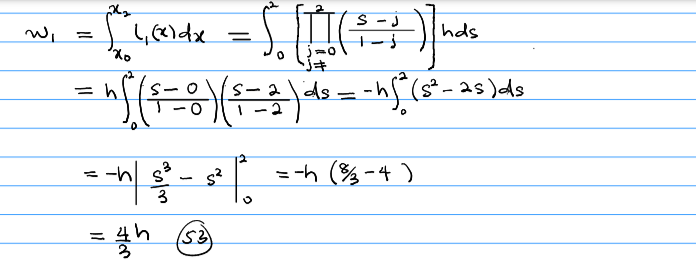 w₁ = ∫_{x₀}^{x₂} l₁(x)dx = ∫_0^2 [∏_{j=0, j≠}^{2} ((s-j)/(1-j))] hds
= h∫_0^2 ((s-0)/(1-0)) ((s-2)/(1-2)) ds = -h∫_0^2 (s²-2s)ds
= -h| s³/3 - s² |_0^2 = -h (8/3 - 4)
= 4/3 h (53)